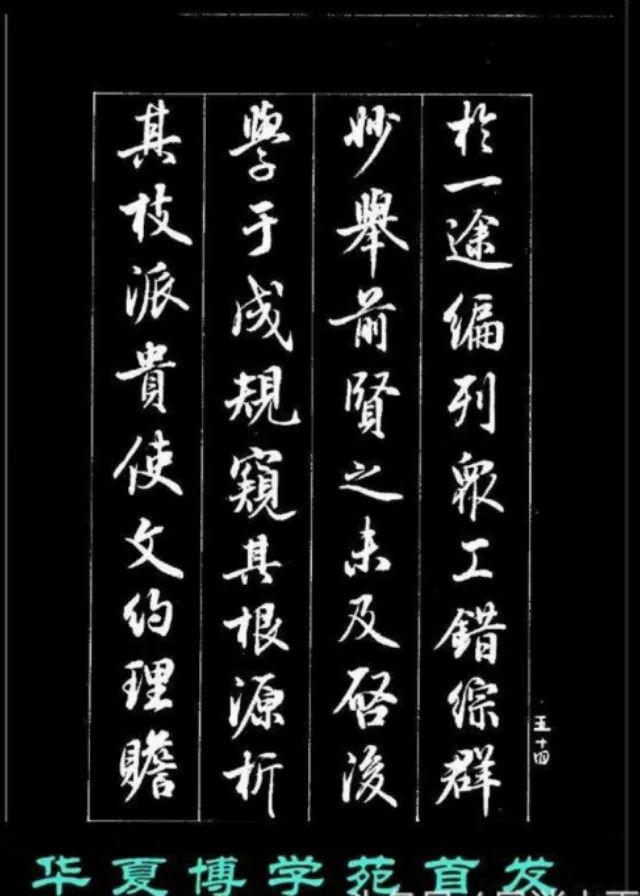 於一途编列衆工錯综群
妙舉前賢之未及啓後
學于成規窺其根源析
其枝派貴使文约理贍
五十四
华夏博学苑首发